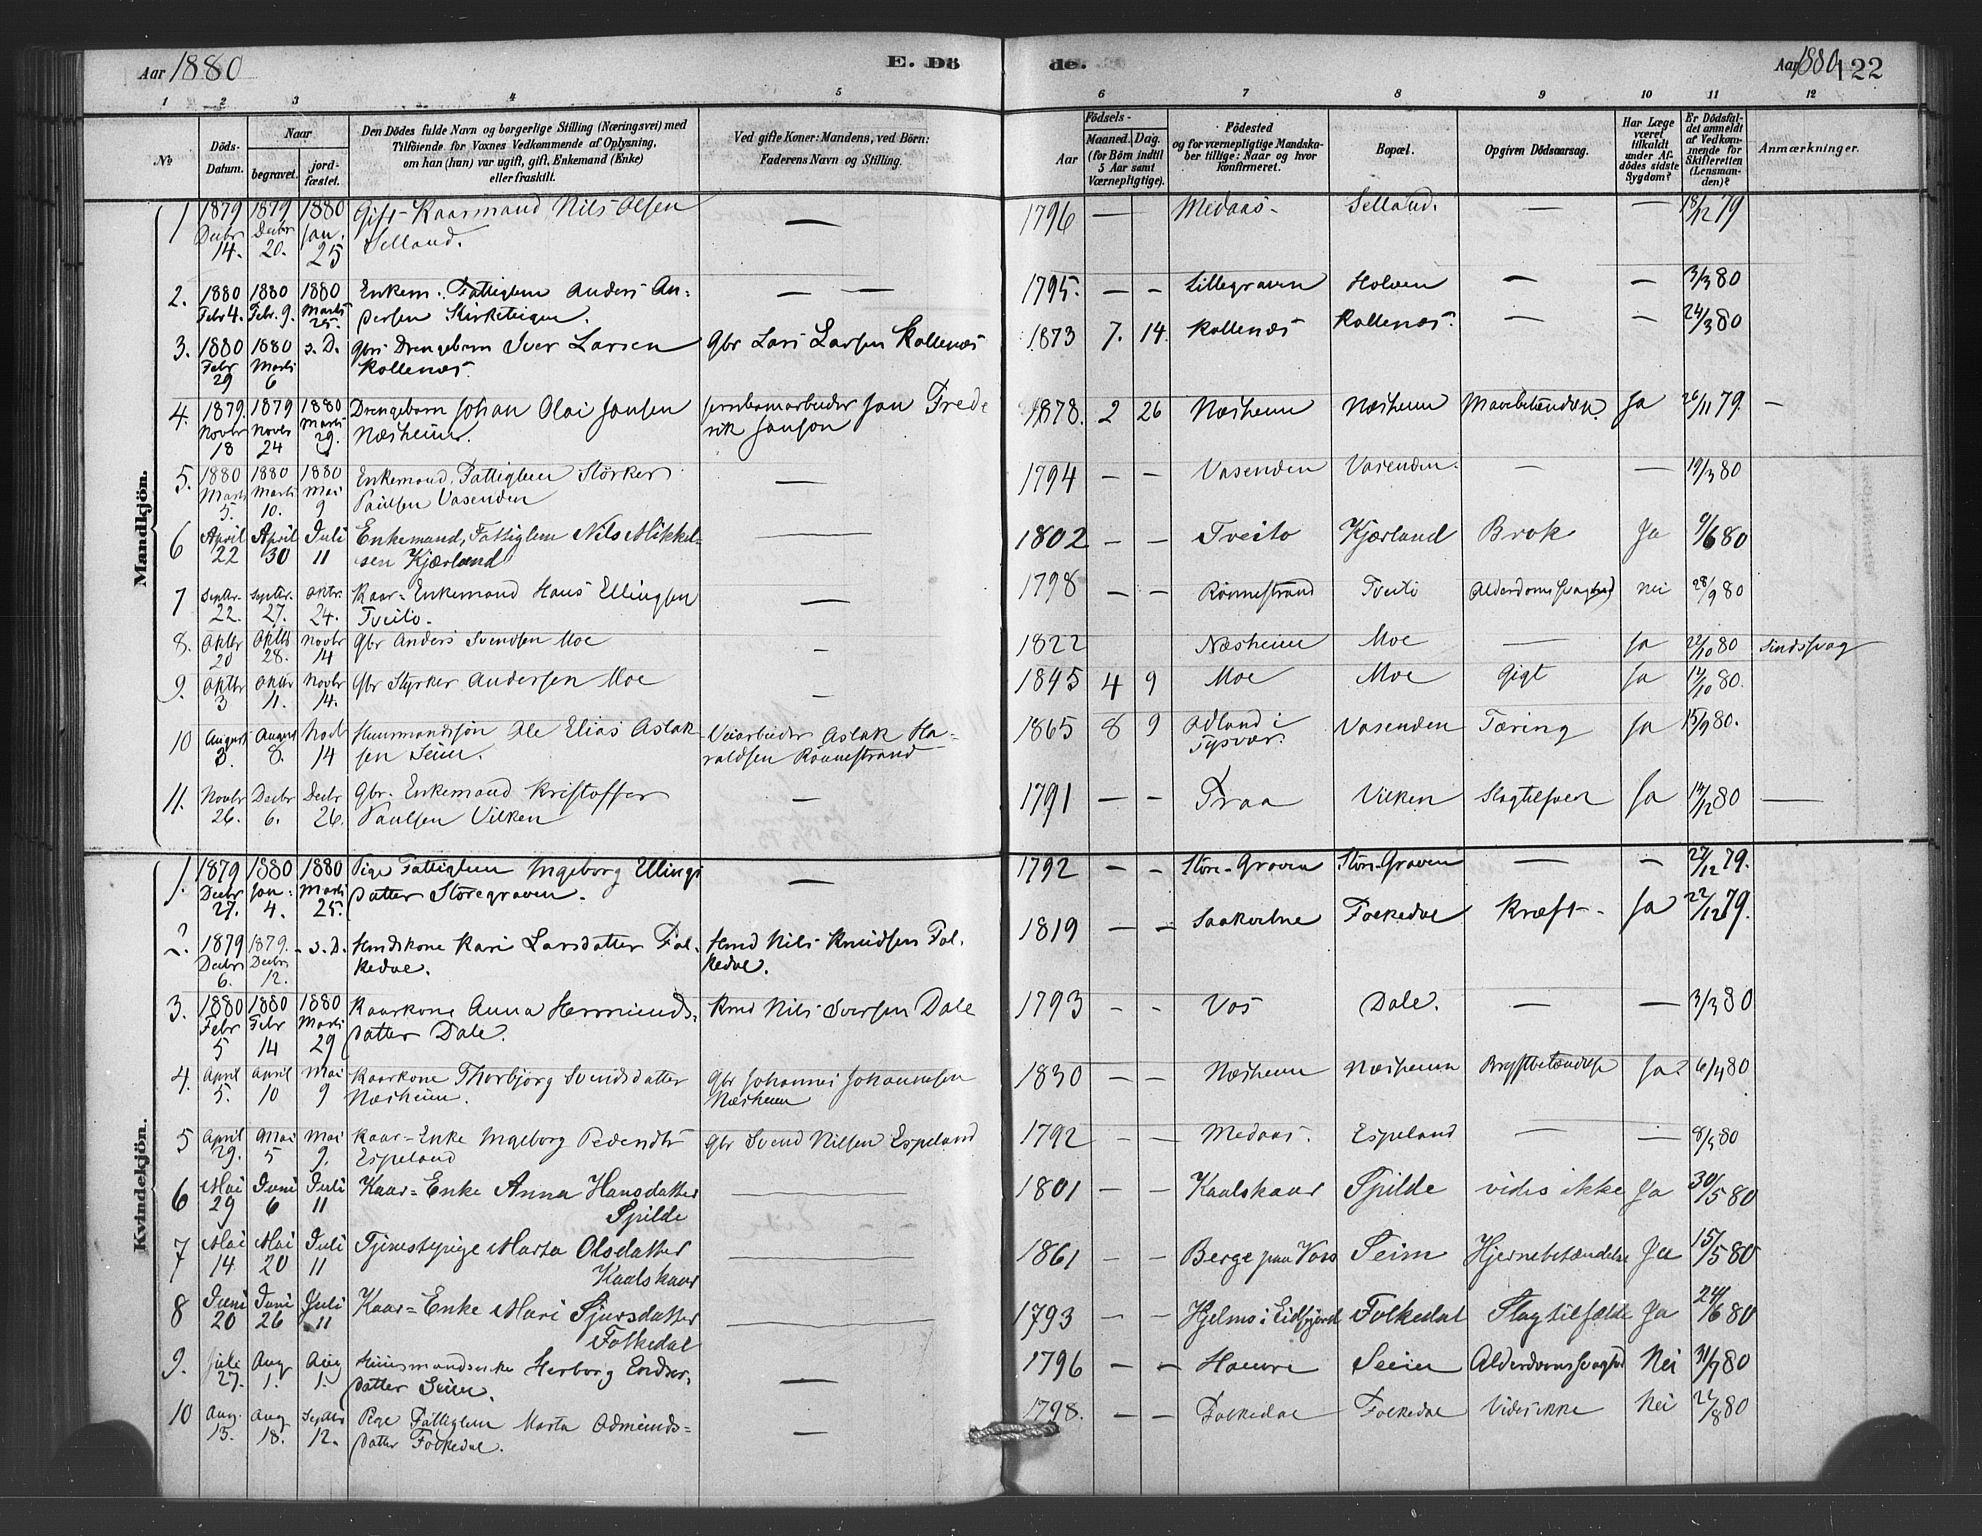 Aar 1880
E. Dö
de.
Aar 1880 122
1 2 3 4 5 6 7 8 9 10 11 12
No
Döds-
Datum.
Naar
begravet.
jord-
fæstet.
Den Dödes fulde Navn og borgerlige Stilling (Næringsvei) med
Tilföiende for Voxnes Vedkommende af Oplysning,
om han (hun) var ugift, gift, Enkemand (Enke)
eller fraskilt.
Ved gifte Koner: Mandens, ved Börn:
Faderens Navn og Stilling.
Födsels-
Aar
Maaned. Dag.
(for Börn indtil
5 Aar samt
Værnepligtige).
Födested
og for værnepligtige Mandska-
ber tillige: Naar og hvor
konfirmeret.
Bopæl.
Opgiven Dödsaarsag.
Har Læge
været
tilkaldt
under Af-
dödes sidste
Sygdom?
Er Dödsfal-
det anmeldt
af Vedkom-
mende for
Skifteretten
(Lensman-
den)?
Anmærkninger.
Mandkjön.
1 1879 1879 1880 Gift- Kaarmand Nils Olsen — 1796 — Medaas- Selland. — — 18/12 79
Decbr Decbr Jan. Selland.
14. 20. 25
2. 1880 1880 1880 Enkem. Fattiglem Anders An= — — 1795. — — Lillegraven Holven — — 3/3 80
Febr 4. Febr. 9. Marts dersen Kirketeigen.
25.
3. 1880 1880 s. D. Gbrs Drengebarn Iver Larsen Gbr Lars Larsen Kollenæs 1873 7. 14. Kollenæs Kollenæs. — — 24/3 80
Febr Marts Kollenæs.
29 6
4. 1879 1879 1880 Drengebarn Johan Olai Jansen Jernbanarbeider Jan Fred= 1878. 2 26 Næsheim Næsheim Mavebetændelse. Ja 26/11 79. —
Novbr Novbr Marts Næsheim. rik Janson
18 24 29.
5. 1880 1880 1880 Enkemand, Fattiglem Störker — 1794 — — Vasenden Vasenden. — — 19/3 80
Marts Marts Mai Paulsen Vasenden
5. 10. 9
6 April April Juli Enkemand, Fattiglem Nils Mikkel- — 1802 — — Tveito Kjærland Brok Ja 9/6 80
22 30 11 sen Kjærland
7 Septbr. Septbr. Oktbr. Kaar- Enkemand Hans Ellingsen — 1798 — — Rönnestrand Tveito Alderdomssvaghed Nei 28/9 80
22. 27. 24. Tveito.
8. Oktbr Oktbr Novbr Gbr Anders Svendsen Moe — 1822 Næsheim Moe — Ja 22/10 80 Sindssvag
20 28. 14
9. Oktbr Oktbr Novbr Gbr Styrker Andersen Moe — 1845 4 9 Moe Moe Gigt Ja 12/10 80.
3 11. 14.
10 August August Novbr Huusmandssön Ole Elias Aslak Veiarbeider Aslak Ha- 1865 8 9 Odland i Vasenden Tæring Ja 15/9 80.
3. 8. 14 sen Seim. raldsen Rönnestrand Tysvær.
11. Novbr Decbr Decbr Gbr. Enkemand Kristoffer — 1791 — — Traa Vilken Slagtilfæld Ja 14/12 80 —
26. 6. 26. Paulsen Vilken
Kvindekjön.
1. 1879 1880 1880 Pige Fattiglem Ingeborg Ellings — 1792 — — Store-Graven Store-Graven — — 27/12 79.
Decbr Jan. Marts datter Storegraven.
27. 4. 25.
2. 1879 1879. s. D. Huuskone Kari Larsdatter Fol- Huusmd Nils Knudsen Fol- 1819 — — Saakvitne Folkedal Kræft-. Ja 22/12 79.
Decbr Decbr kedal. kedal.
6. 12.
3. 1880 1880 1880 Kaarkone Anna Hermunds- Kmd Nils Iversen Dale 1793 — — Vos Dale. — — 3/3 80
Febr Febr Marts datter Dale.
5 14 29
4. April April Mai Kaarkone Thorbjörg Svendsdatter Gbr Johannes Johannesen 1830 — — Næsheim Næsheim Brystbetændelse Ja? 6/4 80
5. 10 9 Næsheim. Næsheim
5 April Mai Mai Kaar-Enke Ingeborg Pedersdtr Gbr Svend Nilsen Espeland 1792 — — Medaas. Espeland — — 8/5 80
29. 5 9. Espeland
6 Mai Juni Juli Kaar=Enke Anna Hansdatter — 1801 — — Kaalskaar Spilde vides ikke Ja 30/5 80
29 6 11 Spilde
7 Mai Mai Juli Tjenestepige Marta Olsdatter — 1861 — — Berge paa Voss Seim Hjernebetændelse Ja 15/5 80
14 20 11 Kaalskaar
8 Juni Juni Juli Kaar=Enke Mari Sjursdatter — 1793 — — Hjelmo i Eidfjord Folkedal Slagtilfælde Ja 24/6 80
20 26 11 Folkedal
9. Juli Aug Aug Huusmandsenke Herborg Endres- — 1796 — — Haure Seim Alderdomssvaghed Nei 31/7 80
27. 1. 1. datter Seim.
10 Aug. Aug Septbr Pige Fattiglem Marta Odmunds= — 1798. — — Folkedal Folkedal Vides ikke Nei 22/8 80
13. 18. 12. datter Folkedal.